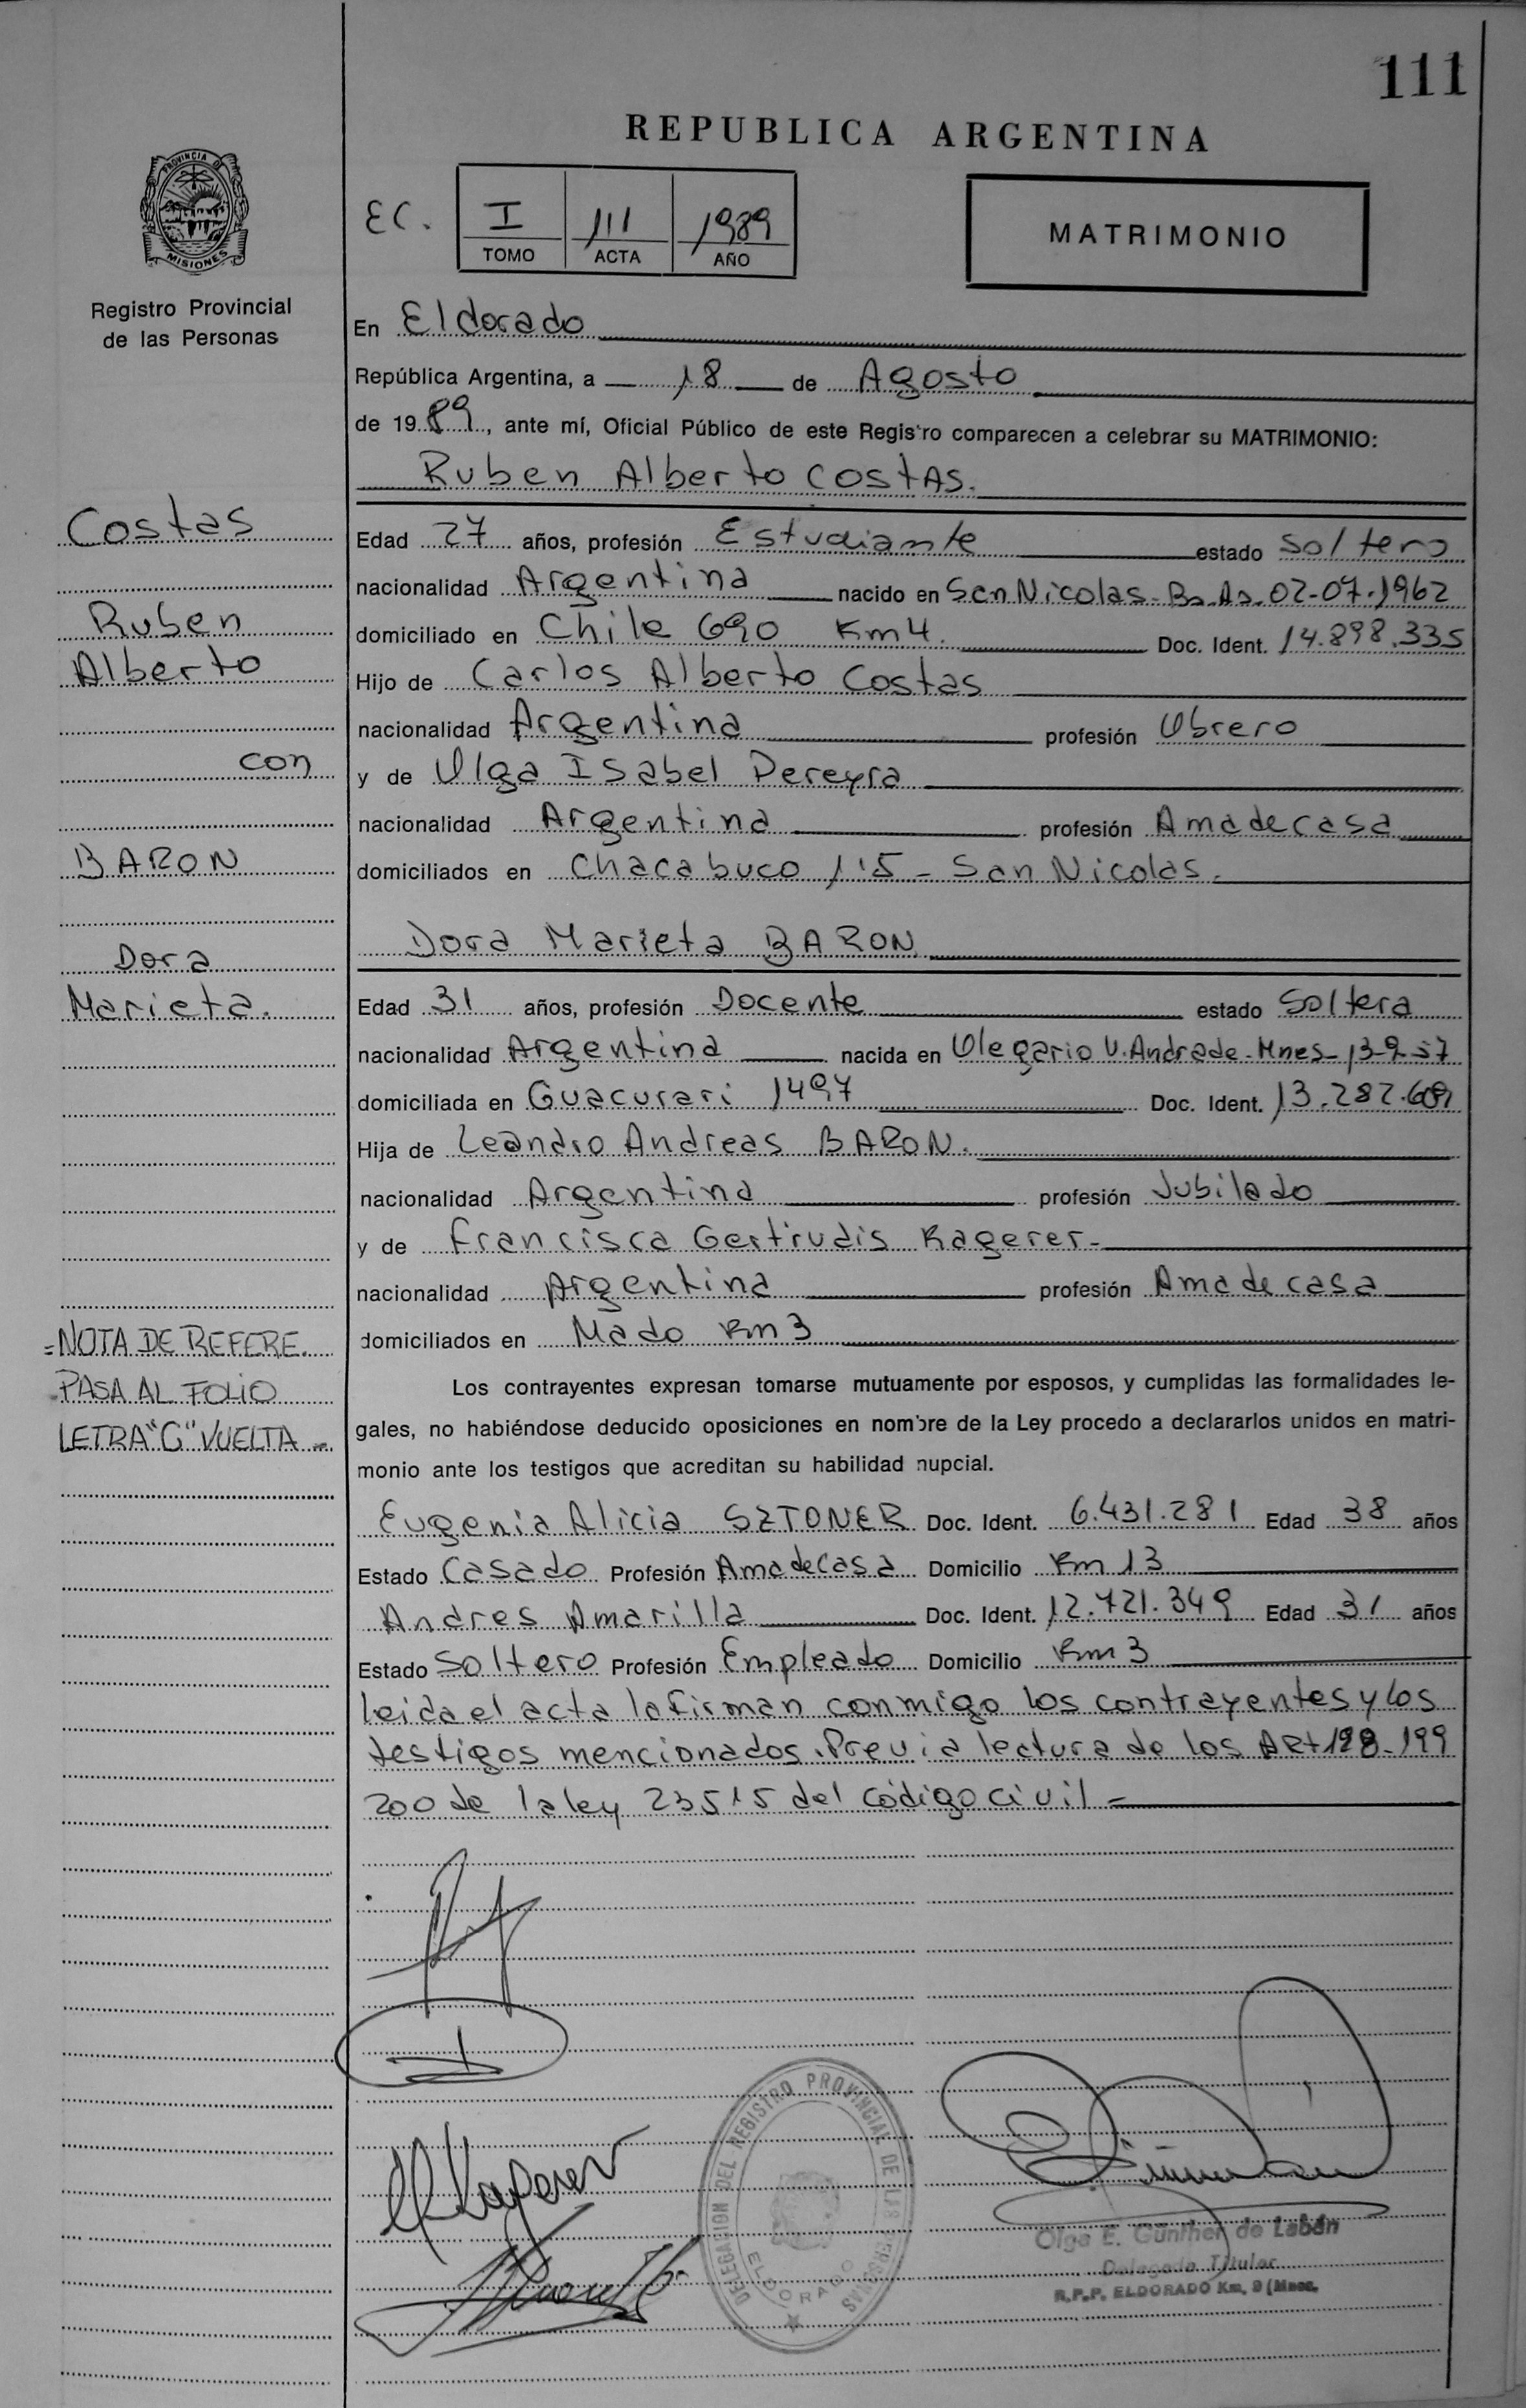 111
REPUBLICA ARGENTINA
PROVINCIA DE
MISIONES
Registro Provincial
de las Personas
EC.
I 111 1989
TOMO ACTA AÑO
MATRIMONIO
En Eldorado
República Argentina, a 18 de Agosto
de 1989, ante mí, Oficial Público de este Registro comparecen a celebrar su MATRIMONIO:
Ruben Alberto COSTAS.
Costas
Ruben
Alberto
con
BARON
Dora
Marieta.
Edad 27 años, profesión Estudiante estado Soltero
nacionalidad Argentina nacido en San Nicolas - Bs. As. 02-07-1962
domiciliado en Chile 690 Km 4. Doc. Ident. 14.898.335
Hijo de Carlos Alberto Costas
nacionalidad Argentina profesión Obrero
y de Olga Isabel Pereyra
nacionalidad Argentina profesión Ama de casa
domiciliados en Chacabuco 115 - San Nicolas.
Dora Marieta BARON
Edad 31 años, profesión Docente estado Soltera
nacionalidad Argentina nacida en Olegario V. Andrade - Mnes - 13-9-57
domiciliada en Guacurari 1497 Doc. Ident. 13.282.
Hija de Leandro Andreas BARON.
nacionalidad Argentina profesión Jubilado
y de Francisca Gertrudis Kagerer-
nacionalidad Argentina profesión Ama de casa
domiciliados en Mado Km 3
=NOTA DE REFERE.
PASA AL FOLIO
LETRA "G" VUELTA -
Los contrayentes expresan tomarse mutuamente por esposos, y cumplidas las formalidades le-
gales, no habiéndose deducido oposiciones en nombre de la Ley procedo a declararlos unidos en matri-
monio ante los testigos que acreditan su habilidad nupcial.
Eugenia Alicia SZTONER Doc. Ident. 6.431.281 Edad 38 años
Estado Casado Profesión Ama de Casa Domicilio Km 13
Andres Amarilla Doc. Ident. 12.721.349 Edad 31 años
Estado Soltero Profesión Empleado Domicilio Km 3
leida el acta la firman conmigo los contrayentes y los
testigos mencionados. Previa lectura de los ART 198-199
200 de la ley 23515 del código civil =
DELEGACION DEL REGISTRO PROVINCIAL DE LAS PERSONAS
ELDORADO
Olga E. Günther de Labán
Delegada Titular
R.P.P. ELDORADO Km. 9 (Mnes.